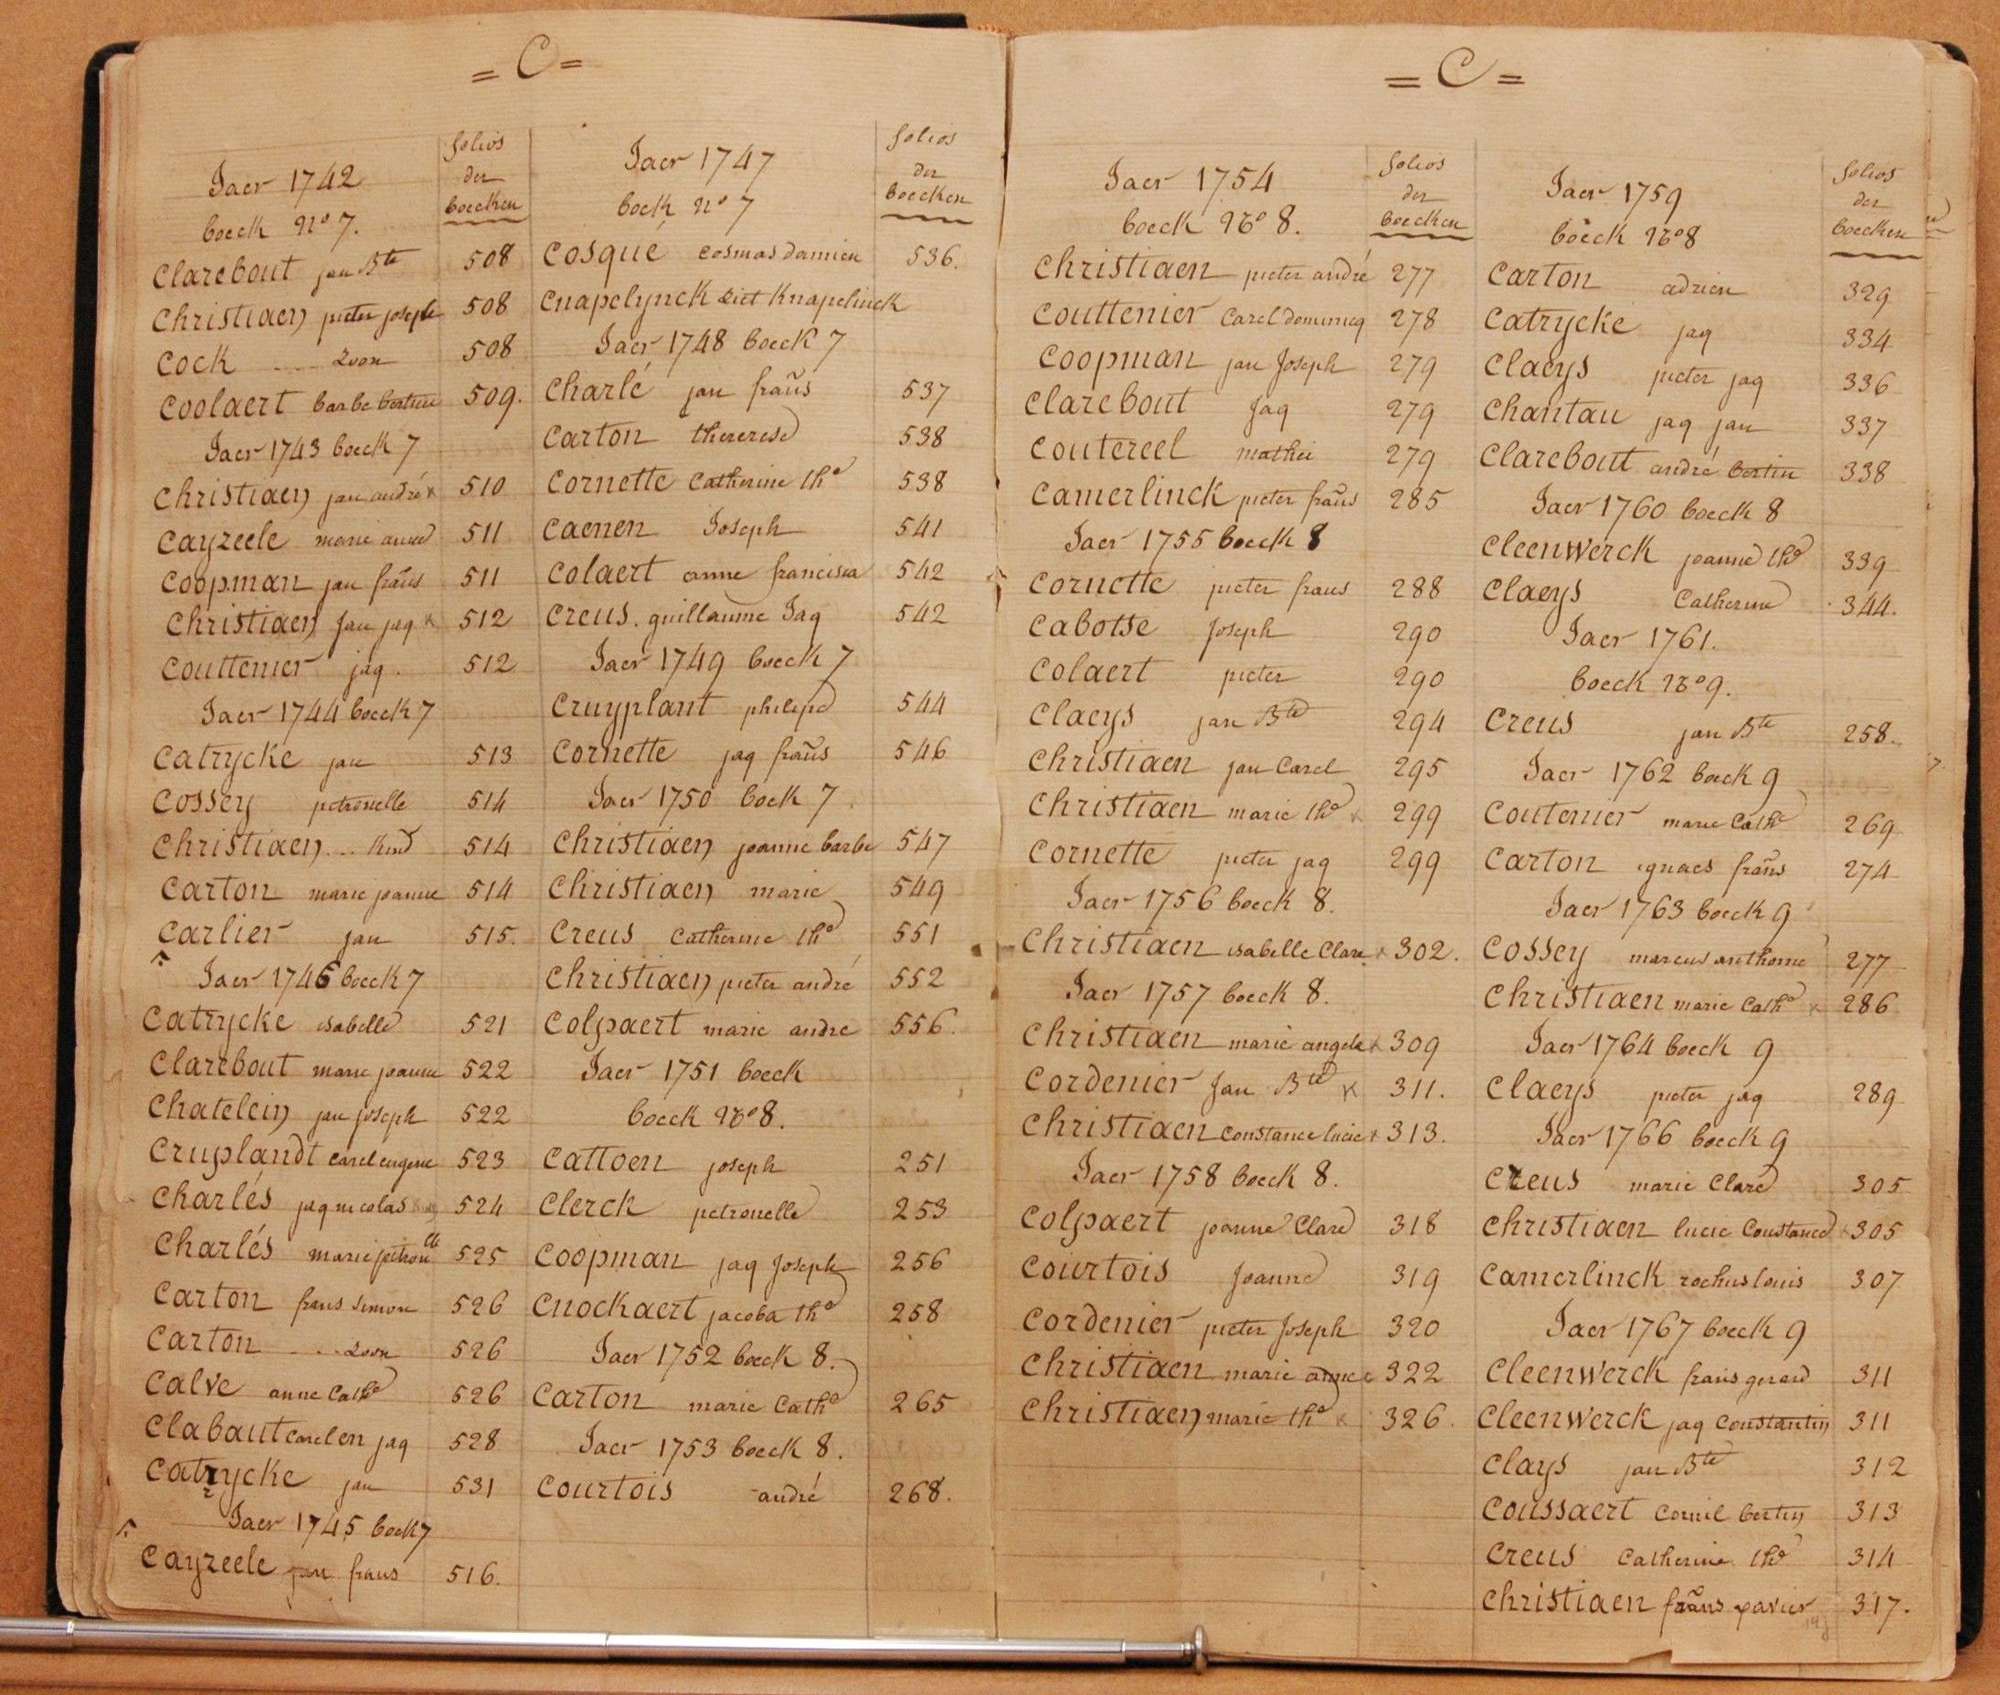 = C =
Jaer 1742
folios
der
boecken
boeck Nº 7.
Clarebout jan Bte 508
Christiaen pieter joseph 508
Cock ... zoon 508
Coolaert barbe bertine 509.
Jaer 1743 boeck 7
Christiaen jan andré x 510
Cayzeele marie anne 511
Coopman jan frañs 511
Christiaen Jan jaq x 512
Couttenier jaq. 512
Jaer 1744 boeck 7
Catrycke jan 513
Cossey petronelle 514
Christiaen ... kind 514
Carton marie joanne 514
Carlier jan 515.
Jaer 1746 boeck 7
Catrycke isabelle 521
Clarebout marie joanne 522
Chatelein jan joseph 522
Cruplandt carel eugene 523
Charlés jaq nicolas 524
Charlés marie petron elle 525
Carton frans simon 526
Carton ... zoon 526
Calve anne Cathe 526
Clabaut carel en jaq 528
Catrycke jan 531
Jaer 1745 boek 7
Cayzeele jan frans 516.
Jaer 1747
folios
der
boecken
boek Nº 7
Cosqué cosmas damien 536.
Cnapelynck ziet Knapelinck
Jaer 1748 boeck 7
Charlé jan frañs 537
Carton thererese 538
Cornette Catherine the 538
Caenen Joseph 541
Colaert anne francisca 542
Creus. guillaume Jaq 542
Jaer 1749 boeck 7
Cruyplant philipe 544
Cornette jaq frañs 546
Jaer 1750 boek 7
Christiaen joanne barbe 547
Christiaen marie 549
Creus Catherine the 551
Christiaen pieter andré 552
Colpaert marie andre 556.
Jaer 1751 boeck
boeck Nº 8.
Cattoen joseph 251
Clerck petronelle 253
Coopman jaq Joseph 256
Cnockaert jacoba the 258
Jaer 1752 boeck 8.
Carton marie Cathe 265
Jaer 1753 boeck 8.
Courtois andré 268.
= C =
Jaer 1754
folios
der
boecken
boeck Nº 8.
Christiaen pieter andré 277
Couttenier Carel dominicq 278
Coopman jan Joseph 279
Clarebout Jaq 279
Coutereel mathei 279
Camerlinck pieter frañs 285
Jaer 1755 boeck 8
Cornette pieter frans 288
Cabotse Joseph 290
Colaert pieter 290
Claeys jan Bte 294
Christiaen jan Carel 295
Christiaen marie the x 299
Cornette pieter jaq 299
Jaer 1756 boeck 8.
Christiaen isabelle Clare x 302.
Jaer 1757 boeck 8.
Christiaen marie angele x 309
Cordenier Jan Bte x 311.
Christiaen Constance lucie x 313.
Jaer 1758 boeck 8.
Colpaert joanne Clare 318
Courtois Joanne 319
Cordenier pieter Joseph 320
Christiaen marie anne x 322
Christiaen marie the x 326.
Jaer 1759
folios
der
boecken
boeck Nº 8
Carton adrien 329
Catrycke jaq 334
Claeys pieter jaq 336
Chantau jaq jan 337
Clarebout andré bertin 338
Jaer 1760 boeck 8
Cleenwerck joanne the 339
Claeys Catherine 344.
Jaer 1761.
boeck Nº 9.
Creus jan Bte 258.
Jaer 1762 boeck 9
Coutenier marie Cathe 269
Carton ignaes frañs 274
Jaer 1763 boeck 9
Cossey marcus anthoine 277
Christiaen marie Cathe x 286
Jaer 1764 boeck 9
Claeys pieter jaq 289
Jaer 1766 boeck 9
Creus marie Clare 305
Christiaen lucie Constance x 305
Camerlinck rochus louis 307
Jaer 1767 boeck 9
Cleenwerck frans gerard 311
Cleenwerck jaq Constantin 311
Clays jan Bte 312
Coussaert Cornil bertin 313
Creus Catherine the 314
Christiaen frañs xavier 317.